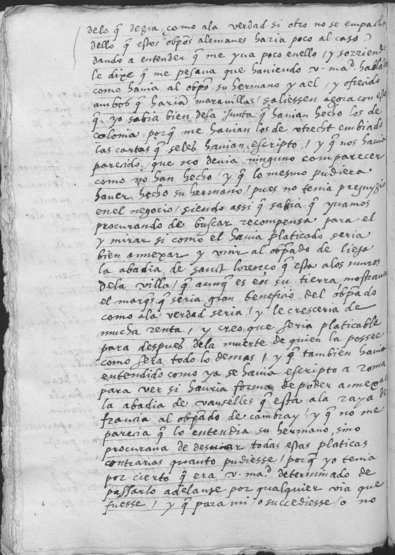 delo q̃ dezia, como ala verdad si otro no se empacha
dello q̃ estos obpõs alemanes haria poco al caso,
dando a entender q̃ me yua poco enello, y sorriendo
le dixe q̃ me pesaua que hauiendo v. mad hablado
como hauia al obpõ su hermano y a el, y ofrecido
ambos q̃ harian marauillas, saliessen agora con esto
q̃ yo sabia bien dela junta q̃ hauian hecho los de
colonia, porq̃ me hauian los de vtrecht embiado
las cartas q̃ seles hauian escripto, y q̃ nos hauia
parecido, que no deuia ninguno comparecer
como no han hecho, y q̃ lo mesmo pudiera
hauer hecho su hermano, pues no tenia
enel negocio, siendo assi q̃ sabia q̃ yuamos
procurando de buscar recompensa para el
y mirar si como el hauia platicado seria
bien annexar y vnir al obpãdo de lieja
la abadia de sanct lorenço q̃ esta alos muros
dela villa, q̃ aunq̃ es en su tierra mostraua
el marq̃s q̃ seria gran beneficio del obpãdo
como ala verdad seria, y le cresceria de
mucha renta, y creo que seria platicable
para despues dela muerte de quien la possee
como sela todo lo demas, y q̃ tambien hauia
entendido como ya se hauia escripto a roma
para ver si hauria forma de poder annexar
la abadia de vauselles q̃ esta ala raya de
francia al obpãdo de cambray, y q̃ no me
parecia q̃ lo entendia su hermano, sino
procuraua de todas estas platicas
contrarias quanto pudiesse, porq̃ yo tenia
por cierto q̃ era v. mad determinado de
passarlo adelante por qualquier via que
fuesse, y q̃ para mi, o succediesse, o no